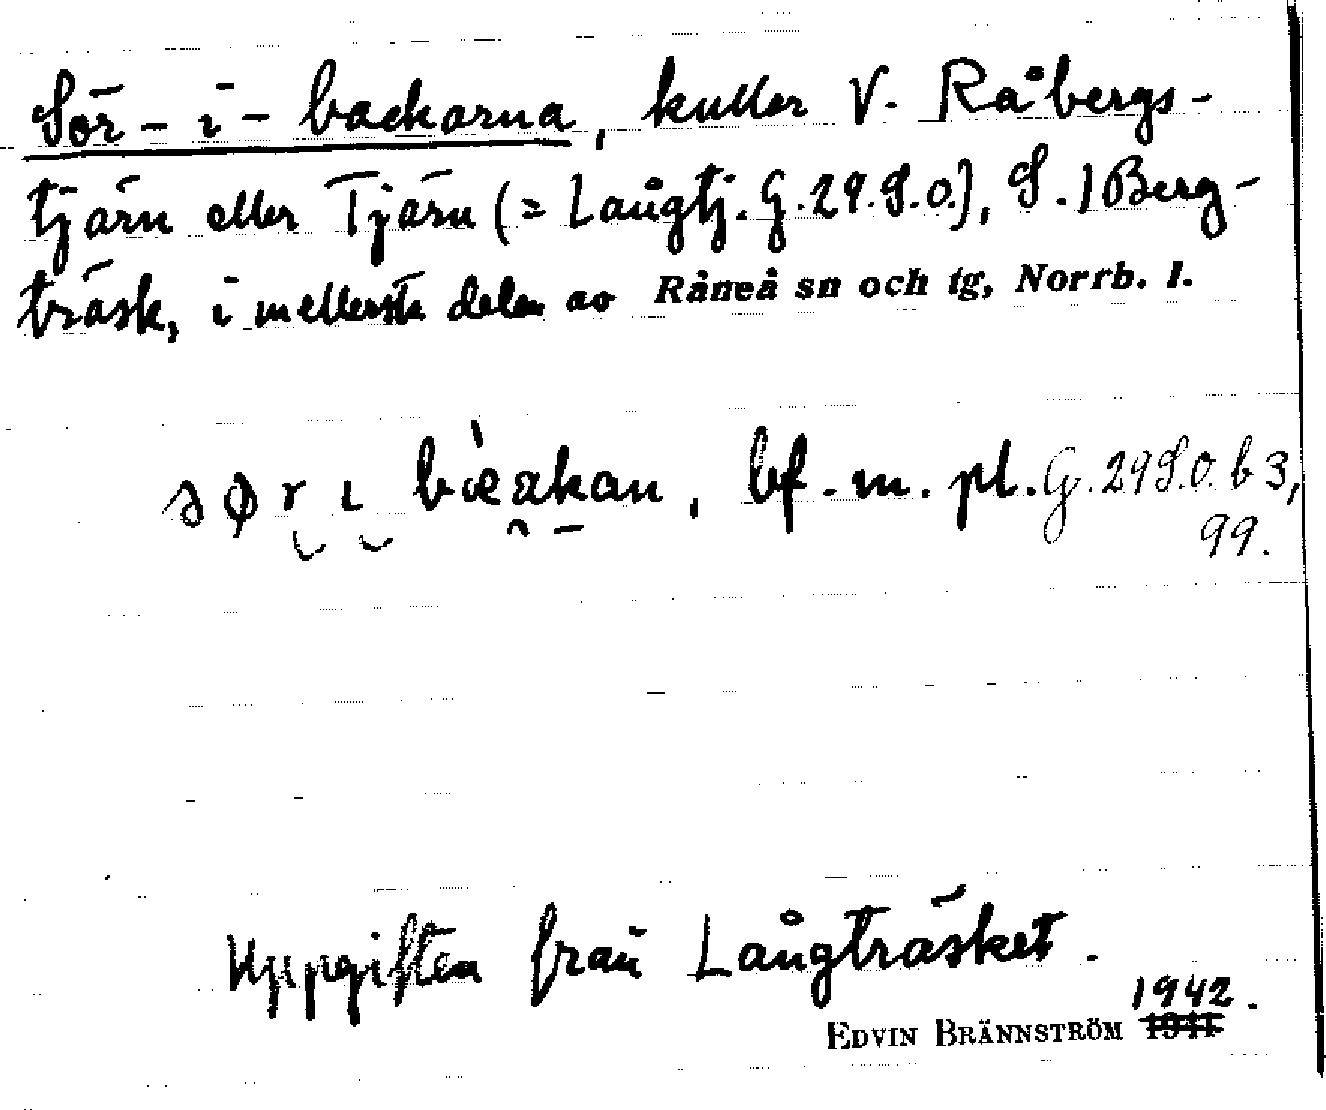 Sör-i-backarna, kullar V. Råbergs-
tjärn eller Tjärn (= Långtj. G.29.S.o.), S. I Berg-
träsk, i mellersta delen av Råneå sn och tg, Norrb. l.
sør ı bæ̀akan, bf. m. pl. G. 29 S.o. b 3,
99.
Uppgiften från Långträsket.
1942.
EDVIN BRÄNNSTRÖM 1941